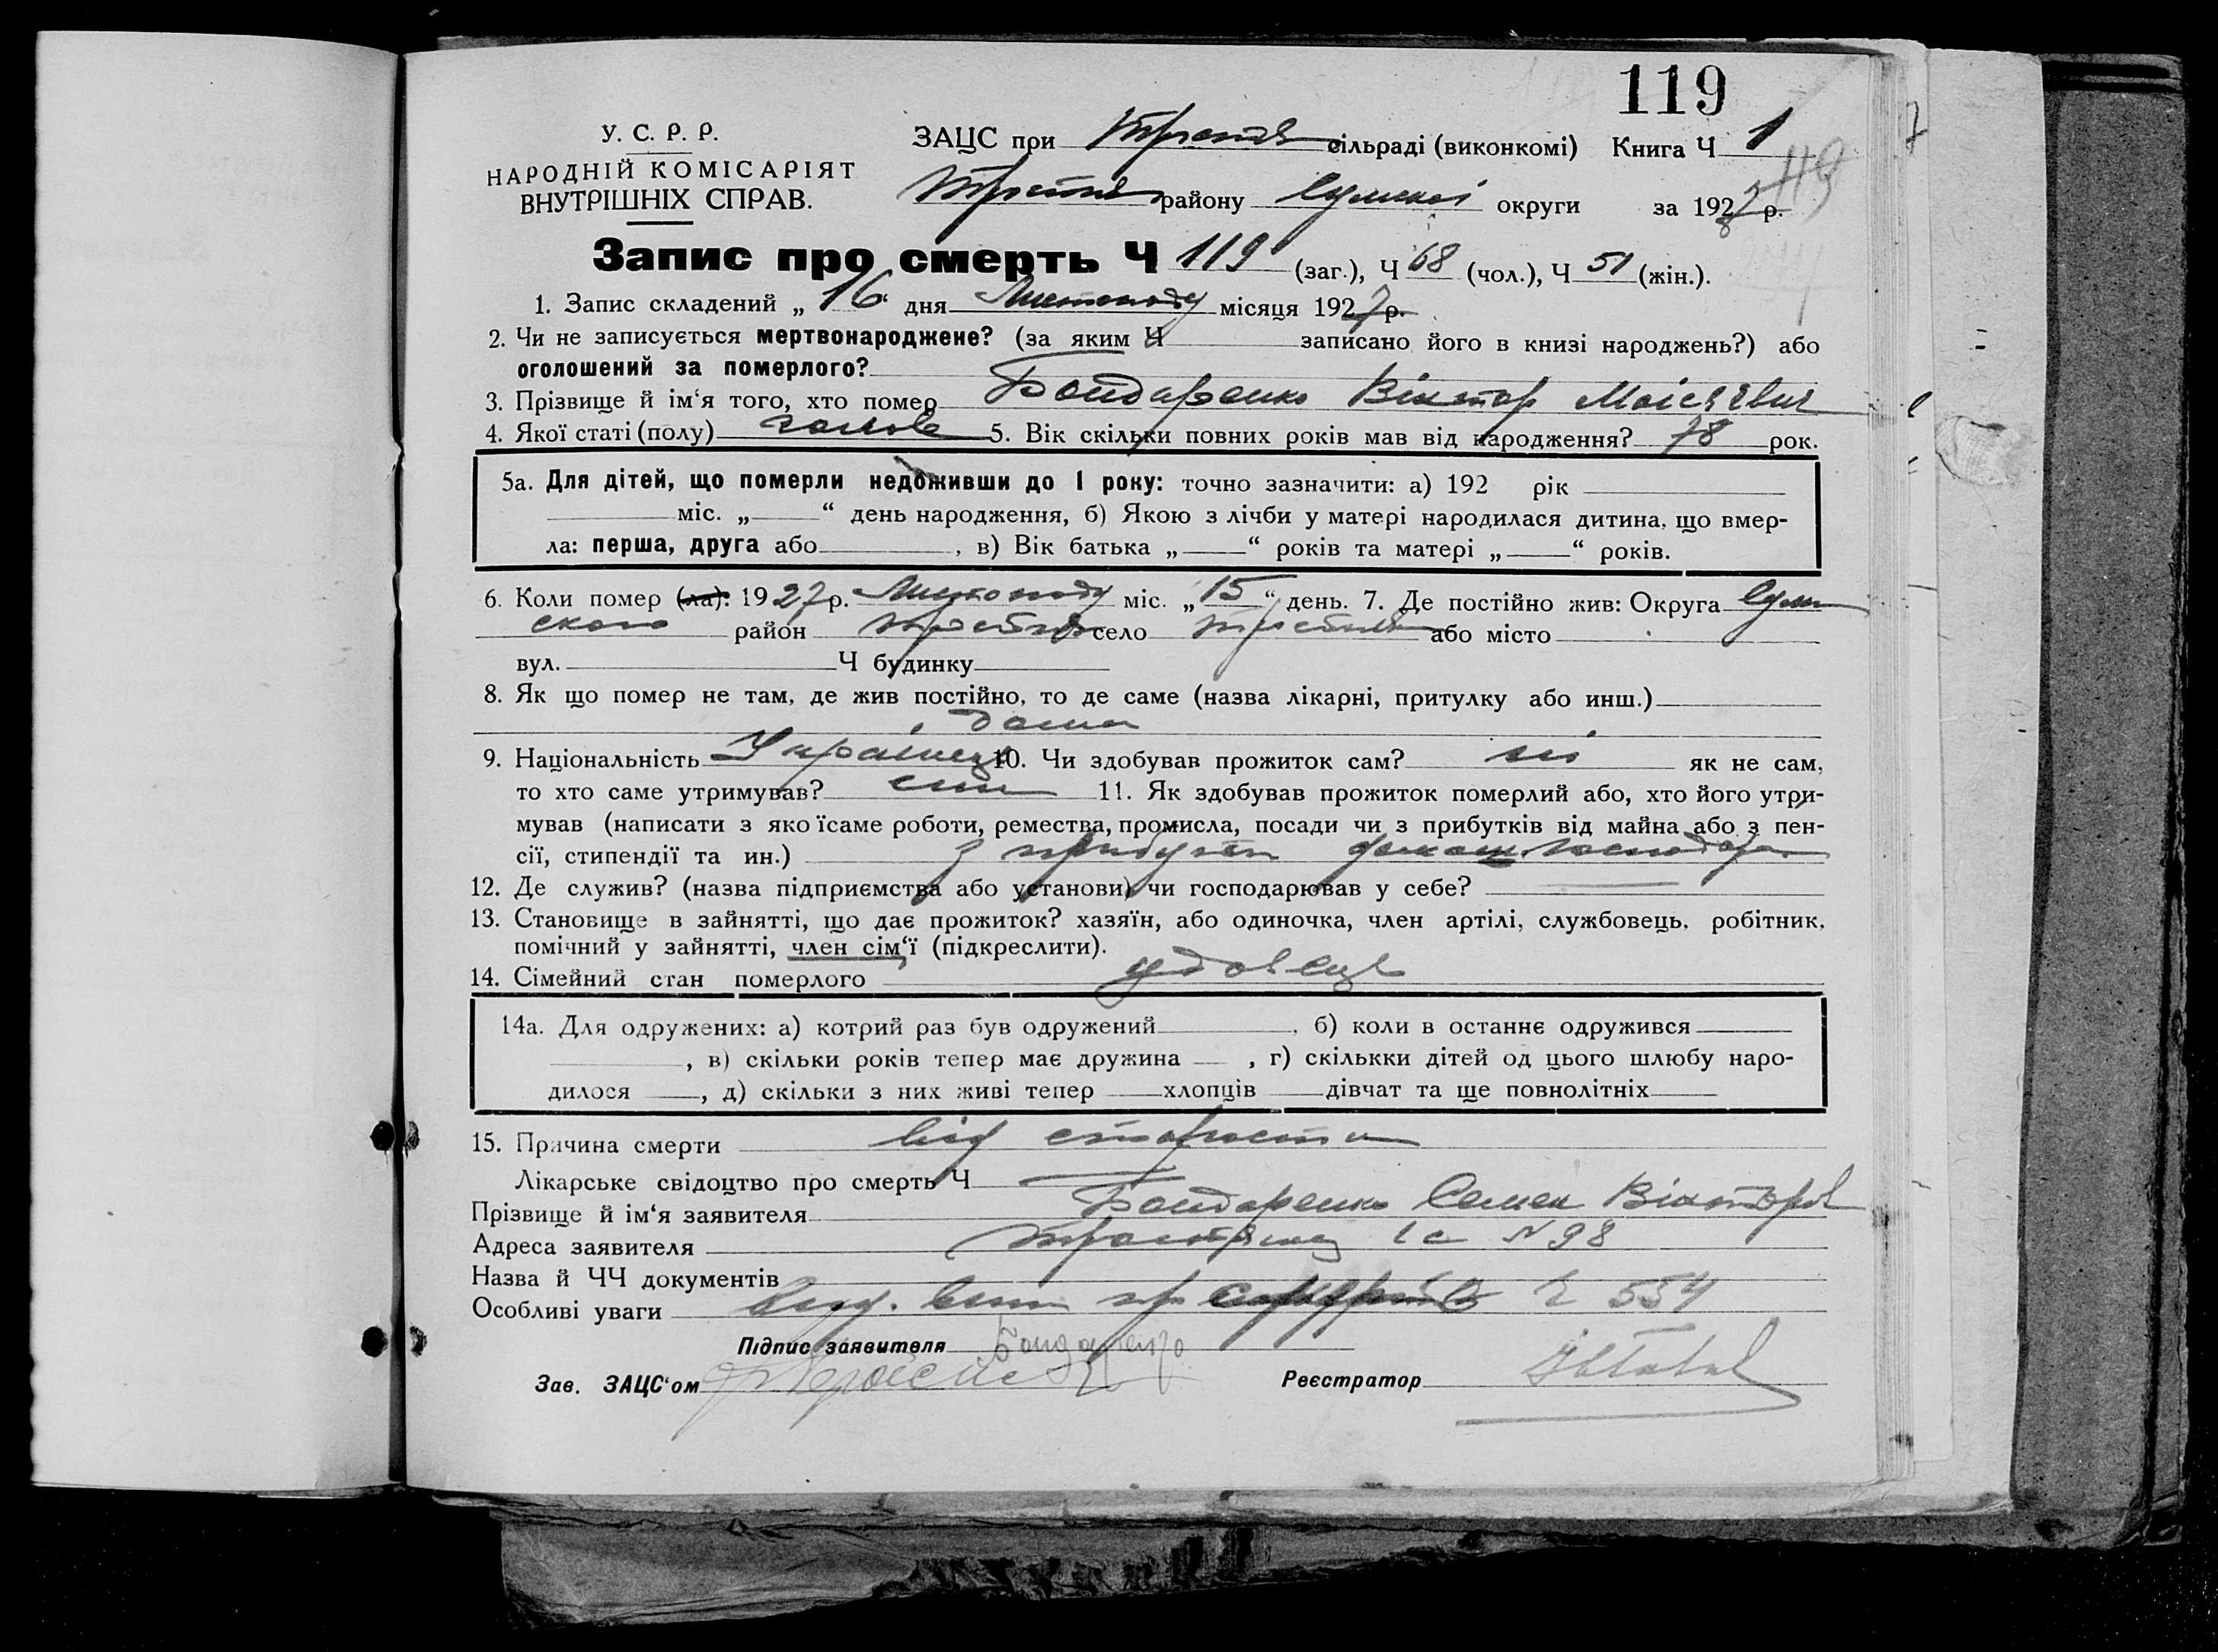 119
У. С. Р. Р.
НАРОДНІЙ КОМІСАРІЯТ
ВНУТРІШНІХ СПРАВ.
ЗАЦС при сільраді (виконкомі) Книга Ч 1
району Сумської округи за 1927 р. 119
Запис про смерть Ч 119 (заг.), Ч 68 (чол.), Ч 51 (жін.).
1. Запис складений „ 16 “ дня Листопаду місяця 1927 р.
2. Чи не записується мертвонароджене? (за яким Ч записано його в книзі народжень?) або
оголошений за померлого?
3. Прізвище й ім‘я того, хто помер Бондаренко Віктор Моісеєвич
4. Якої статі (полу) чолов 5. Вік скільки повних років мав від народження? 78 рок.
5а. Для дітей, що померли недоживши до 1 року: точно зазначити: а) 192 рік
міс. „ “ день народження, б) Якою з лічби у матері народилася дитина, що вмер-
ла: перша, друга або , в) Вік батька „ “ років та матері „ “ років.
6. Коли помер (ла): 1927 р. Листопаду міс. „ 15 “ день. 7. Де постійно жив: Округа Сум
ского район село або місто
вул. Ч будинку
8. Як що помер не там, де жив постійно, то де саме (назва лікарні, притулку або инш.)
дома
9. Національність Українець 10. Чи здобував прожиток сам? ні як не сам,
то хто саме утримував? син 11. Як здобував прожиток померлий або, хто його утри-
мував (написати з якоїсаме роботи, ремества, промисла, посади чи з прибутків від майна або з пен-
сії, стипендії та ин.) з прибутк домаш. господар
12. Де служив? (назва підприємства або установи) чи господарював у себе?
13. Становище в зайнятті, що дає прожиток? хазяїн, або одиночка, член артілі, службовець, робітник,
помічний у зайнятті, член сім‘ї (підкреслити).
14. Сімейний стан померлого удовець
14а. Для одружених: а) котрий раз був одружений , б) коли в останнє одружився
, в) скільки років тепер має дружина , г) скількки дітей од цього шлюбу наро-
дилося , д) скільки з них живі тепер хлопців дівчат та ще повнолітніх
15. Причина смерти від старости
Лікарське свідоцтво про смерть Ч
Прізвище й ім‘я заявителя Бондаренко Семен Вікторов
Адреса заявителя Тростянец 1 с № 98
Назва й ЧЧ документів
Особливі уваги Ч 554
Підпис заявителя Бондаренко
Зав. ЗАЦС‘ом
Реєстратор